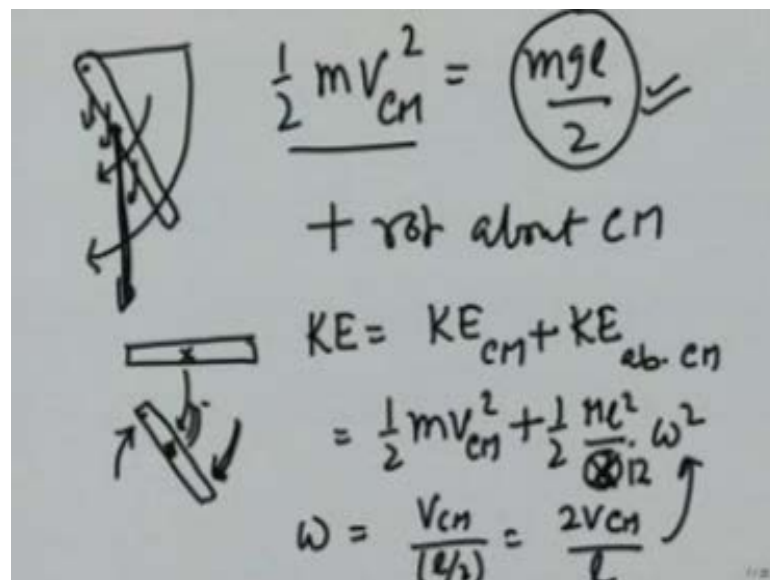 ½ mV_CM² = mgl/2
+ rot about CM
KE = KE_CM + KE_ab. CM
= ½ mV_CM² + ½ Ml²/12 · ω²
ω = V_CM/(l/2) = 2V_CM/l